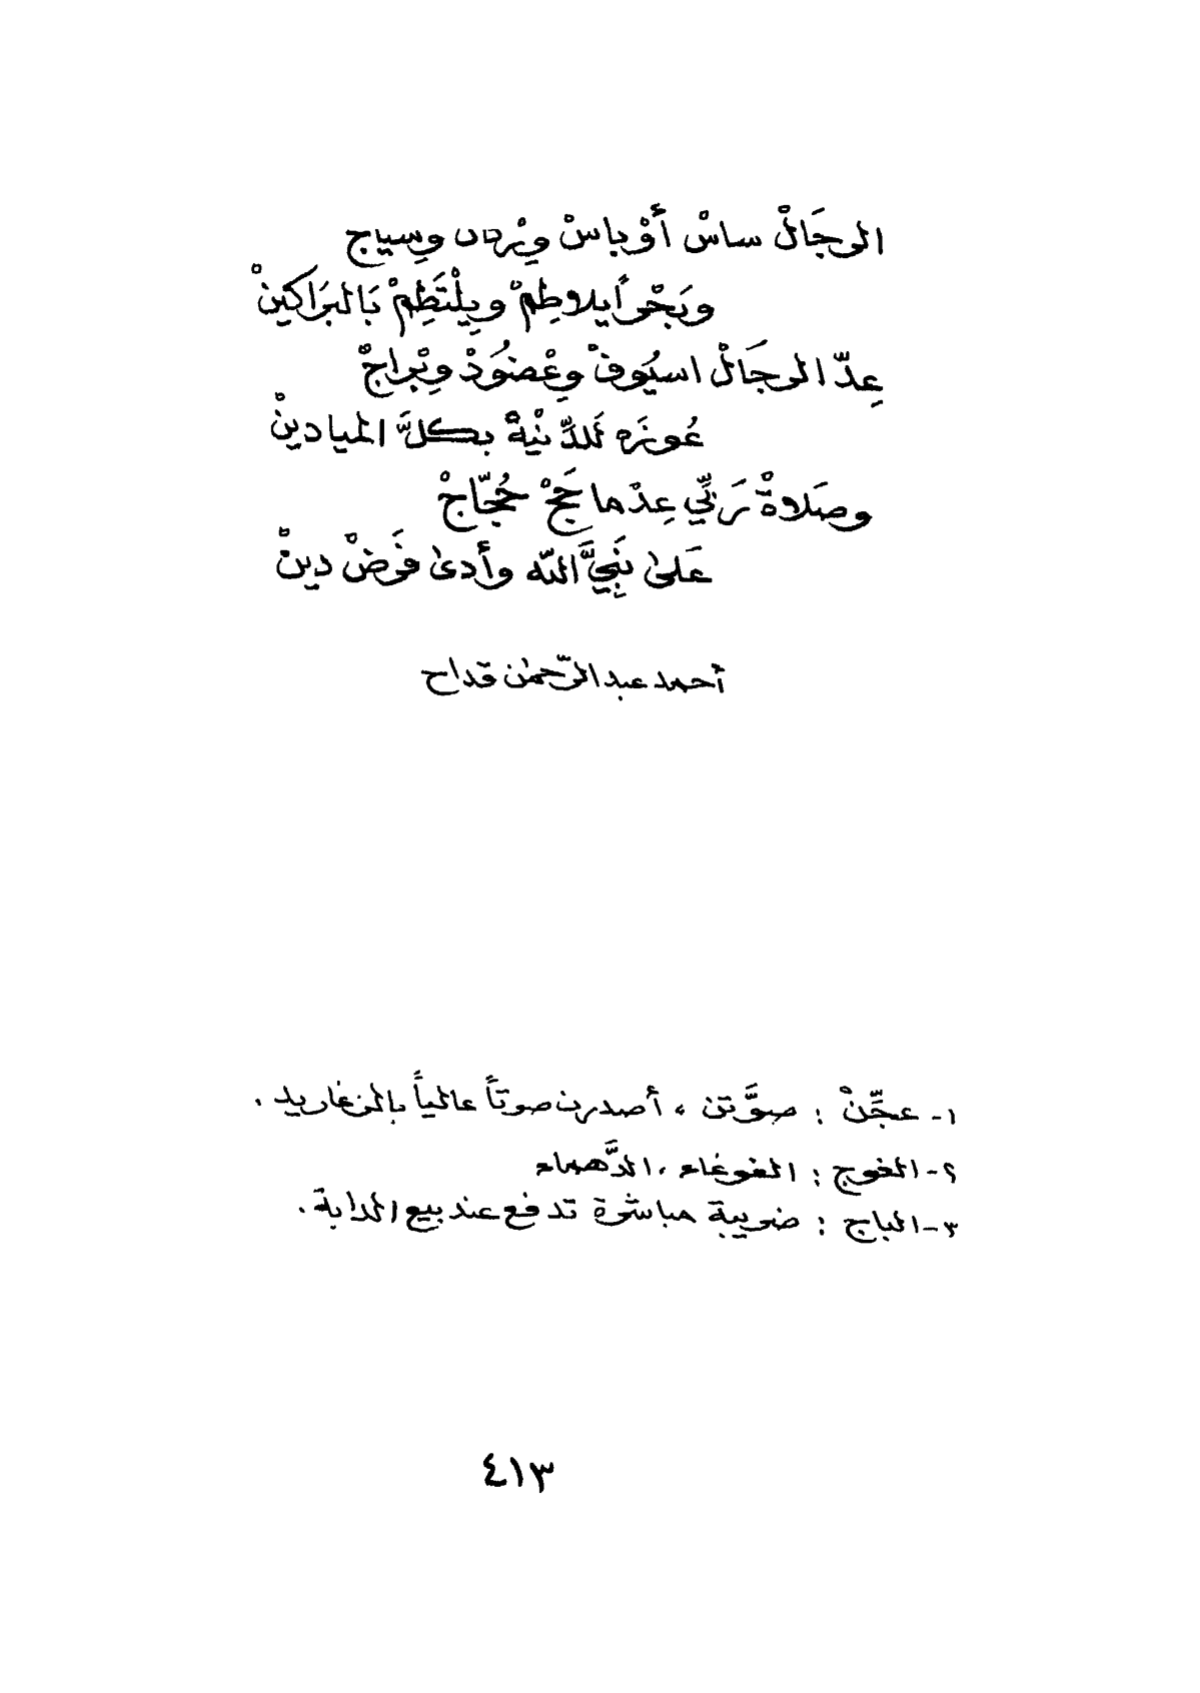 الرجَالْ ساسْ أوْ باسْ وِسياج
وبَحْراً يلاطِمْ ويِلْتَطِمْ بَالبرَاكينْ
عِدّ الرجَالْ اسيُوفْ وِعْضوُدْ وِبْراجْ
عُوزَه للدِّنْيِهْ بكلَّ الميادينْ
وصَلاةْ رَبِّي عِدْ ما حَجْ حُجّاجْ
عَلىٰ نَبِيَّ اللّه وأدىٰ فَرَضْ دينْ
أحمد عبد الرّحمٰن قداح
١- عجِّنْ : صوَّتن ، أصدرن صوتاً عالياً بالزغاريد .
٢- الغوج : الغوغاء ، الدَّهماء
٣- الباج : ضريبة مباشرة تدفع عند بيع الدابة .
٤١٣